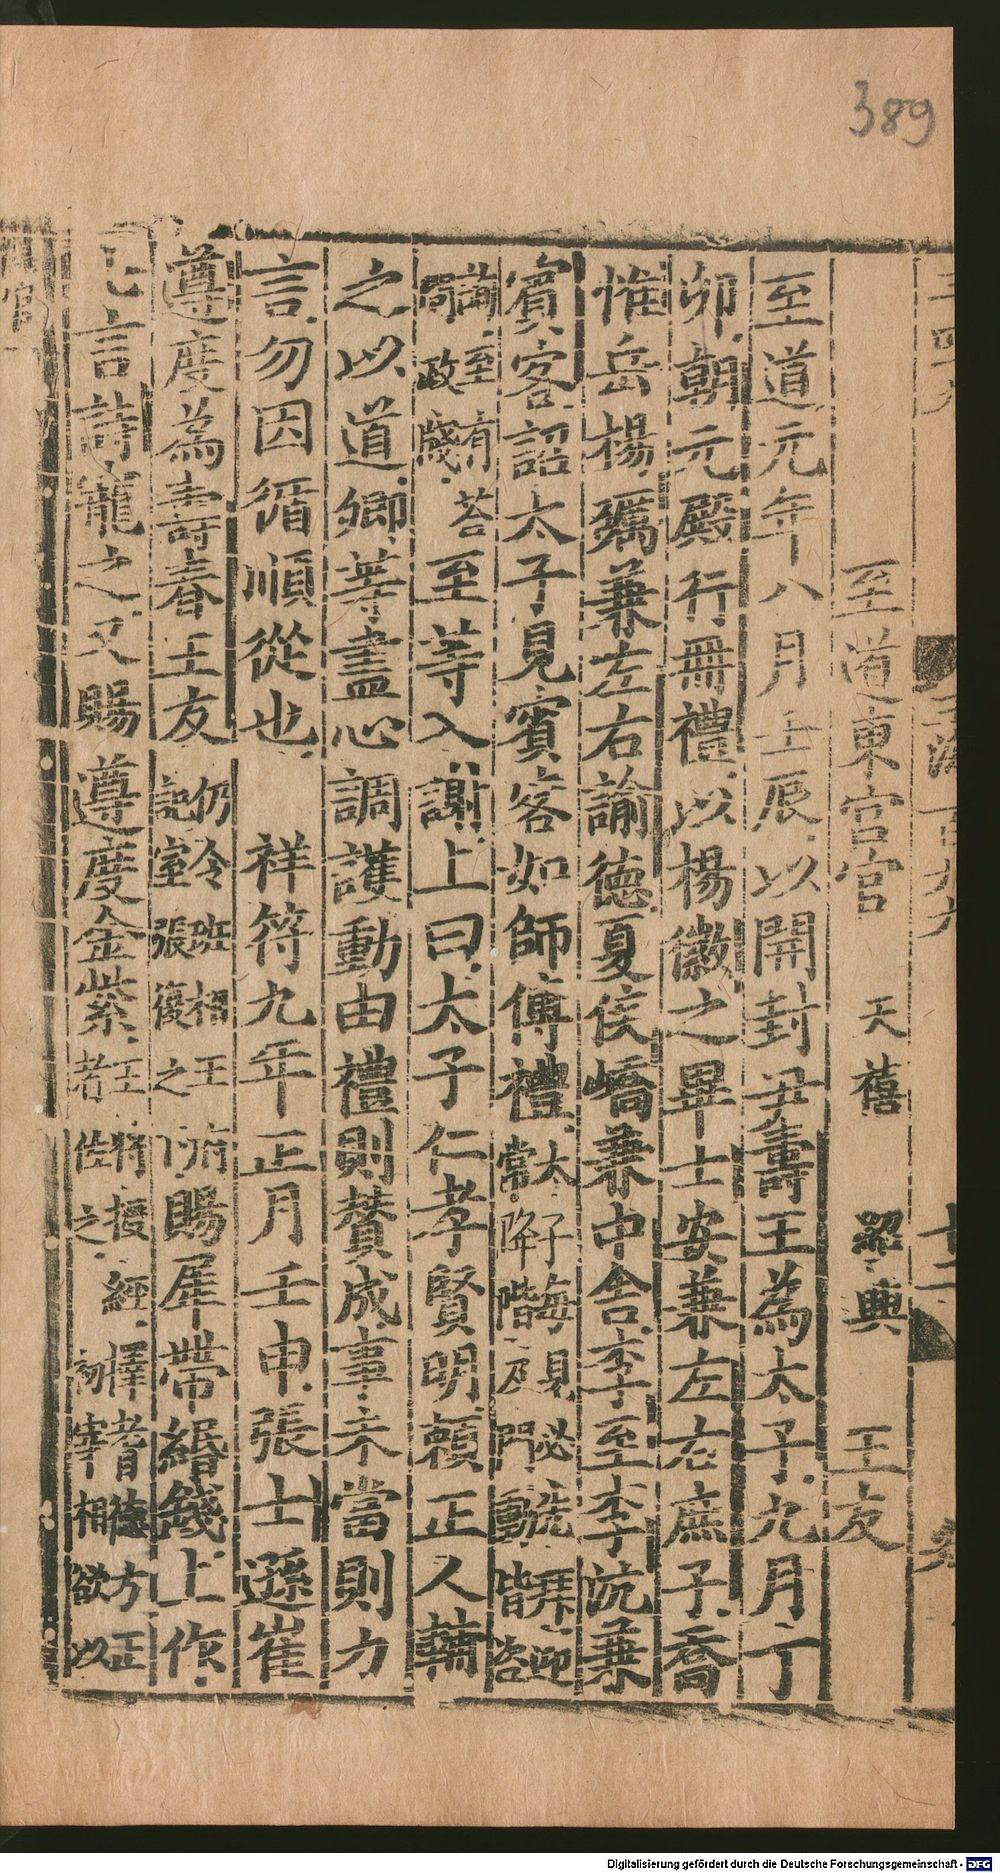 389
至道東宮官　天禧　紹興　王友
至道元年八月壬辰以開封尹壽王為太子九月丁
卯朝元殿行冊禮以楊徽之畢士安兼左右庶子喬
惟岳楊礪兼左右諭德夏侯嶠兼中舍李至李沆兼
賓客詔太子見賓客如師傅禮太子每見必先拜迎
常降階及門動皆咨
至等入謝上曰太子仁孝賢明賴正人輔
之以道卿等盡心調護動由禮則贊成事未當則力
言勿因循順從也　祥符九年正月壬申張士遜崔
遵度為壽春王友仍令班在王府
記室張復之下賜犀帶緡錢上作
七言詩寵之又賜遵度金紫王將授經擇耆德方正
者佐之初宰相欲以
Digitalisierung gefördert durch die Deutsche Forschungsgemeinschaft - DFG